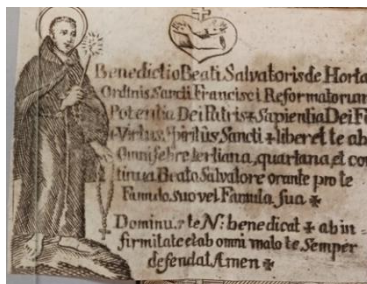 Benedictio Beati Salvatoris de Horta
Ordinis Sancti Francisci Reformatorum
Potentia Dei Patris ✠ Sapientia Dei Fi
✠ Virtus Spiritûs Sancti ✠ liberet te ab
Omni febre tertiana, quartana, et con
tinua Beato Salvatore orante pro te
Famulo suo vel Famula sua ✠
Dominus te N: benedicat ✠ ab in-
firmitate et ab omni malo te Semper
defendat Amen ✠